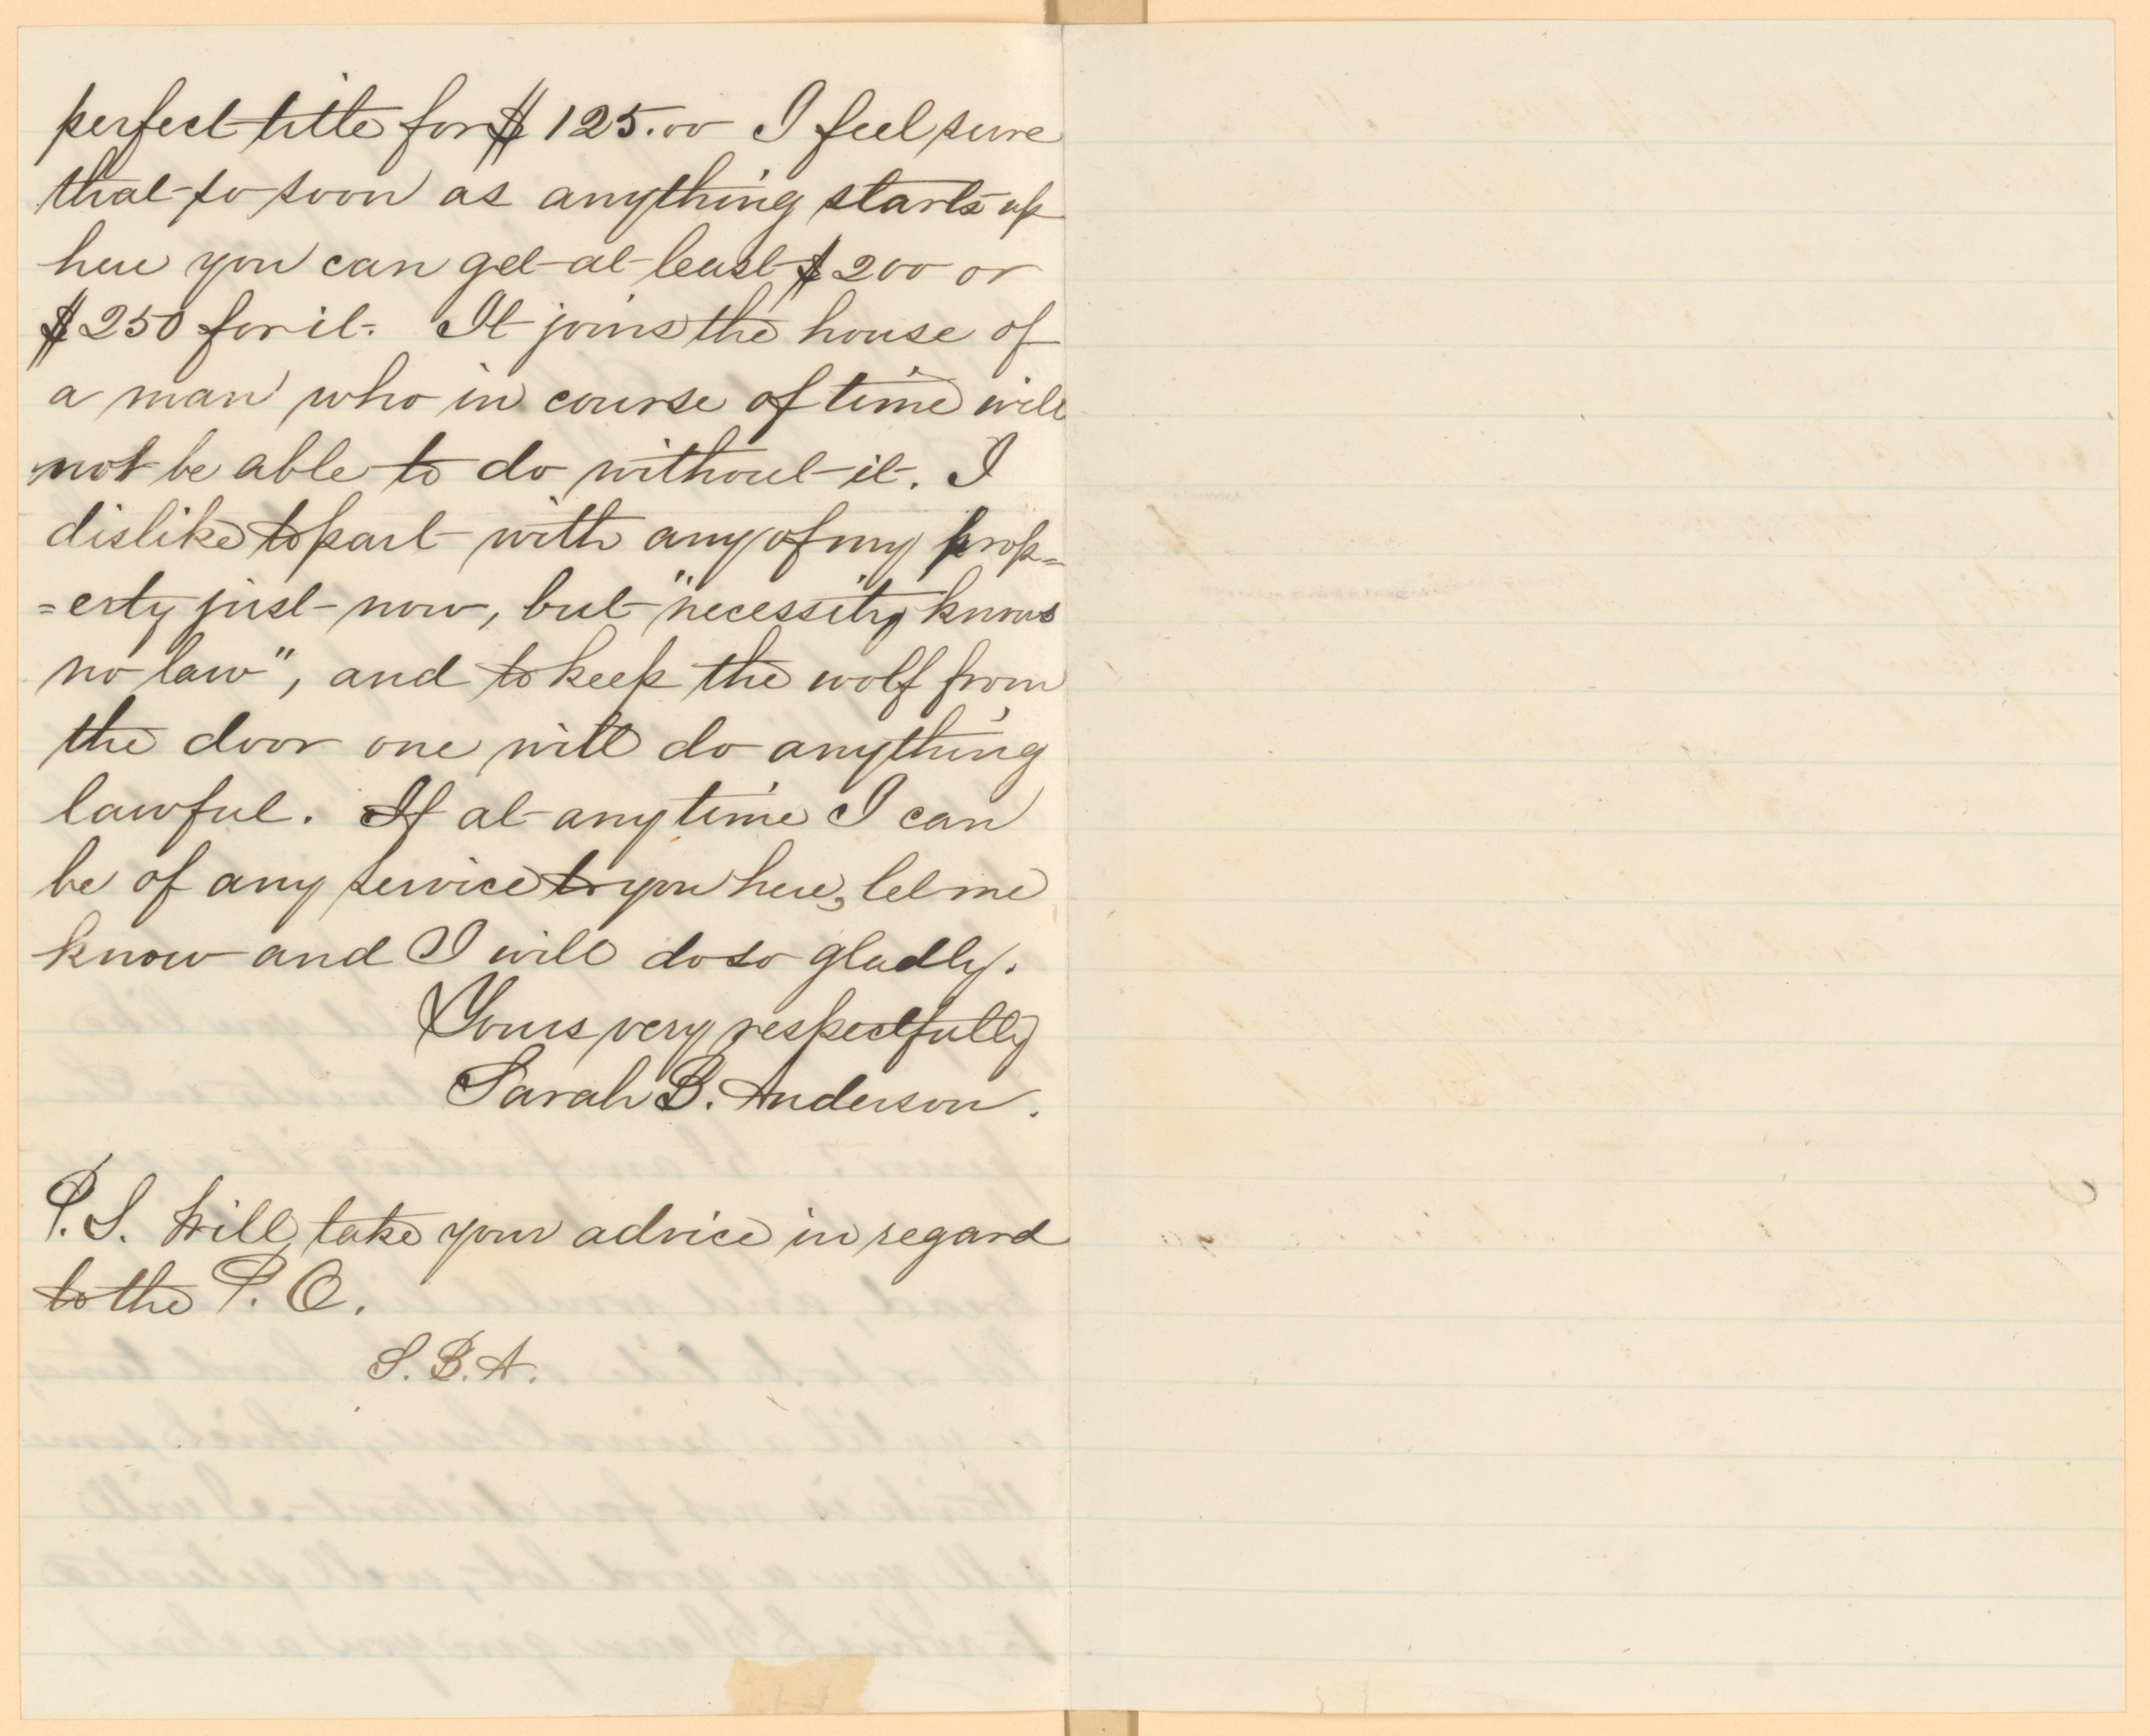 perfect title for $125.00 I feel sure
that so soon as anything starts up
here you can get at least $200 or
$250 for it. It joins the house of
a man who in course of time will
not be able to do without it. I
dislike to part with any of my prop=
=erty just now, but "necessity knows
no law", and to keep the wolf from
the door one will do anything
lawful. If at any time I can
be of any service to you here, let me
know and I will do so gladly.
Yours very respectfully
Sarah B. Anderson.
P.S. Will take your advice in regard
to the P. O.
S.B.A.